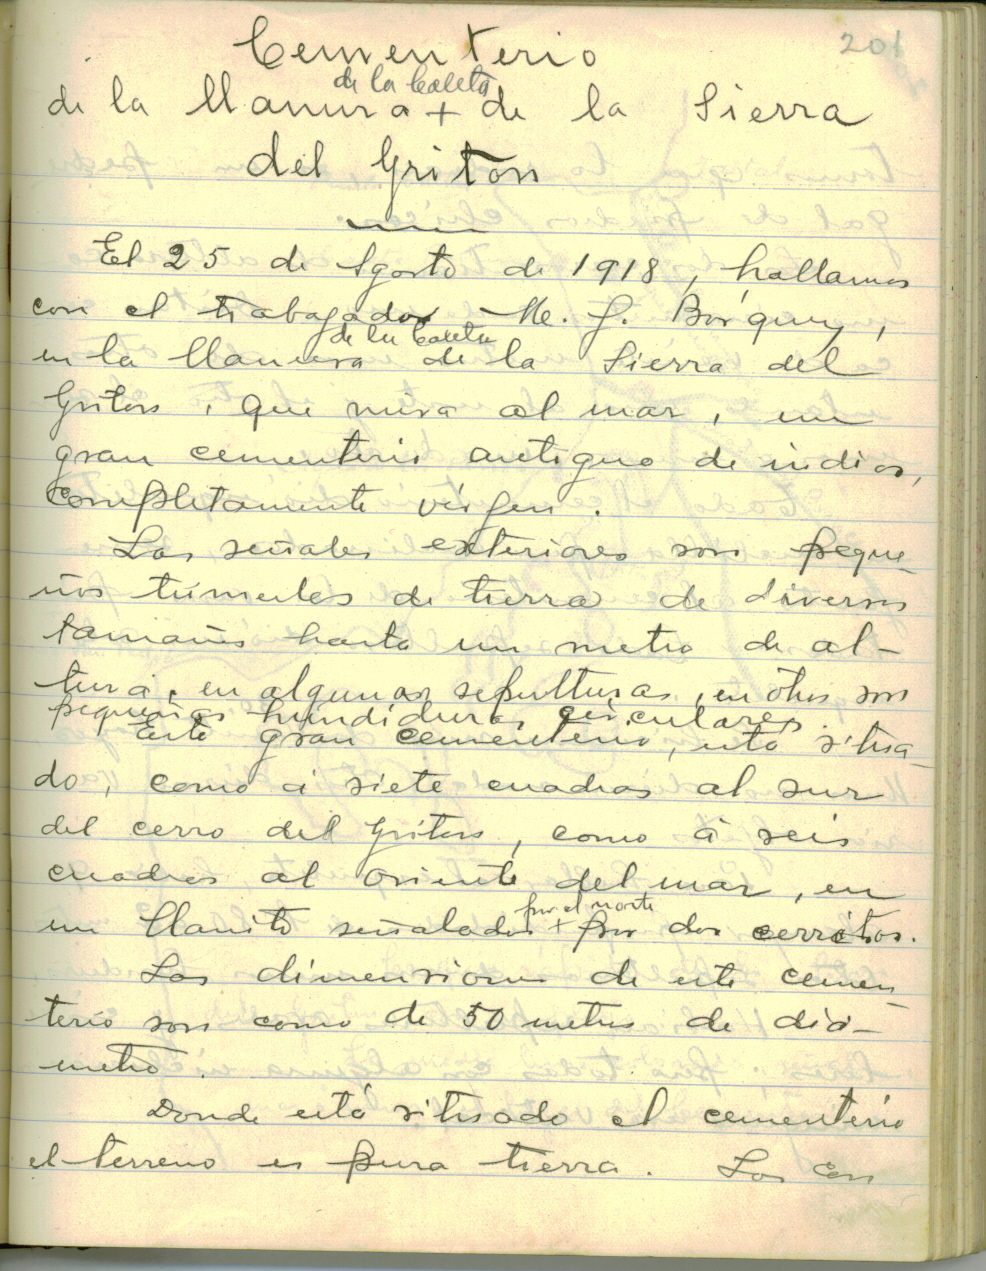 201
Cementerio
de la Caleta
de la llanura + de la Sierra
del Gritón
El 25 de Agosto de 1918, hallamos
con el trabajador M. J. Bórquez,
de la Caleta
en la llanura de la Sierra del
Gritón, que mira al mar, un
gran cementerio antiguo de indios,
completamente vírgen.
Las señales exteriores son peque-
ños túmulos de tierra de diversos
tamaños hasta un metro de al-
tura, en algunas sepulturas, en otros son
pequeñas hundiduras circulares.
Este gran cementerio, está situa-
do, como á siete cuadras al sur
del cerro del Gritón, como á seis
cuadras al oriente del mar, en
por el norte
un llanito señalados + por dos cerritos.
Las dimensiones de este cemen-
terio son como de 50 metros de diá-
metro.
Donde está situado el cementerio
el terreno es pura tierra. Las con